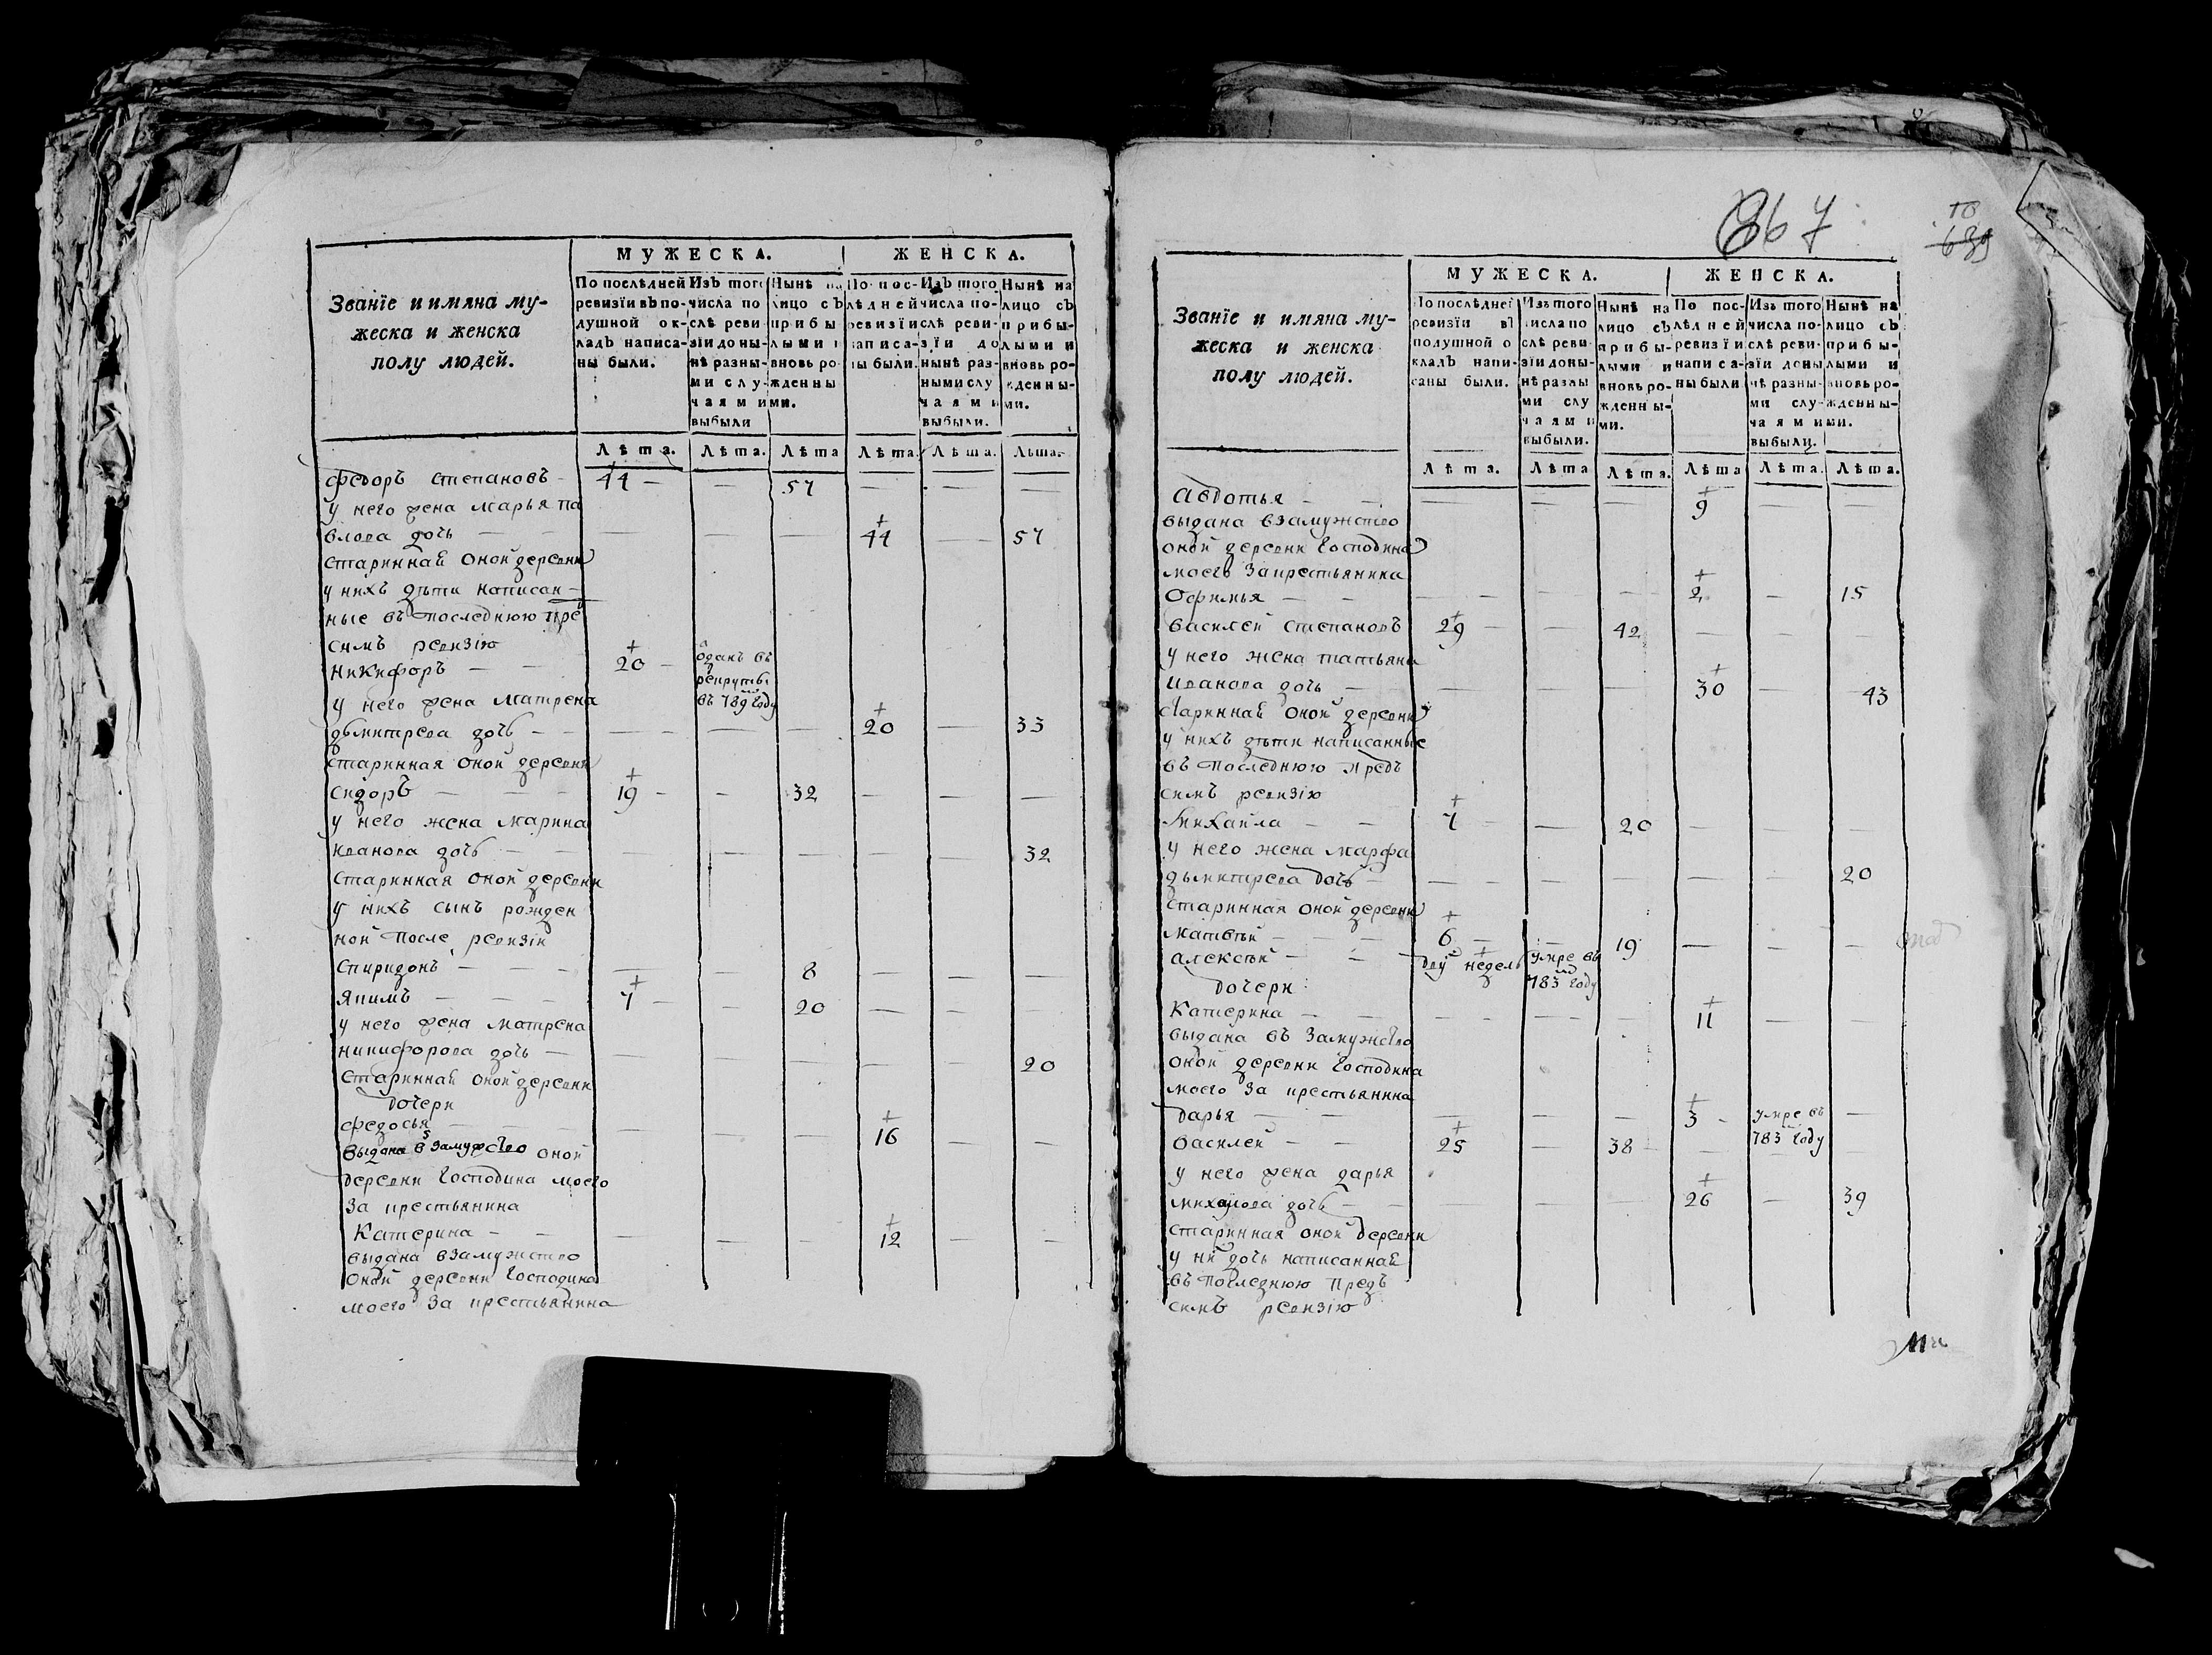 МУЖЕСКА. ЖЕНСКА.
Званїе и имяна му-
жеска и женска
полу людей.
По послѣдней ревизїи въ по-душной ок-ладъ написа-ны были.
Изъ того числа по слѣ реви зїи до ны-нѣ разны-ми слу-чаями выбыли
Нынѣ на лицо съ прибы лыми и вновь ро-жденны ми.
По пос-лѣдней ревизїи написа-ны были.
Изъ того числа по-слѣ реви-зїи до нынѣ раз-ными слу чаями выбыли.
Нынѣ на лицо съ прибы-лыми и вновь ро-жденны-ми.
Лѣта. Лѣта. Лѣта Лѣта. Лѣта. Лѣта.
Федоръ степановъ - 44 - — 57 — — —
у него жена марья па
влова дочь — — — — — 44 — 57
стариннаѣ оной деревни
у нихъ дѣти написан-
ные въ последнюю пре
симъ ревизїю
Никифоръ — — 20 - оданъ въ рекруты въ 789 году
у него жена матрена
дьмитрева дочь - - — — — 20 — 33
старинная оной деревни
сидоръ — — — 19 - - 32 — — —
у него жена марина
иванова дочь — — — — — — — 32
старинная оной деревни
у нихъ сынъ рожден
ной после ревизїи
спиридонъ - - - — — 8 — — —
якимъ — — - 7 - - 20 — — —
у него жена матрена
никифорова дочь — — — — — — 20
стариннаѣ оной деревни
дочери
федосья — — — — — — 16 — —
выдана в замужство оной
деревни господина моего
за крестьянина
Катерина - - — — - 12 — —
выдана взамужство
оной деревни господина
моего за крестьянина
867
10
639
МУЖЕСКА. ЖЕНСКА.
Званїе и имяна му-
жеска и женска
полу людей.
По послѣдней ревизїи въ подушной о кладъ напи-саны были.
Изъ того числа по слѣ реви зїи до ны-нѣ разны ми слу чаями выбыли.
Нынѣ на лицо съ прибы-лыми и вновь ро-жденны-ми.
По пос-лѣдней ревизїи написа-ны были.
Изъ того числа по-слѣ реви-зїи до ны нѣ разны-ми слу-чаями выбыли.
Нынѣ на лицо съ прибы-лыми и вновь ро-жденны-ми.
Лѣта. Лѣта Лѣта. Лѣта Лѣта. Лѣта.
Авдотья - - — — — 9 — —
выдана взамужство
оной деревни господина
моего закрестьянина
Офимья — - — - — — 2 — 15
василей степановъ 29 - — 42 — — —
у него жена татьяна
иванова дочь — - — — — 30 — 43
стариннаѣ оной деревни
у нихъ дѣти написанные
въ последнюю предъ
симъ ревизїю
михайла - - 7 - — 20 — — —
у него жена марфа
дьмитрева дочь — — — — — — 20
старинная оной деревни
матвѣй - — - 6 - — 19 — — —
алексѣй - - дву недель умре въ 783 году
дочери
Катерина — - - - — — — 11 — —
выдана въ замужство
оной деревни господина
моего за крестьянина
дарья — — — — — 3 - умре въ 783 году —
василей - - 25 — 38 - — — —
у него жена дарья
михайлова дочь - - — — — 26 — 39
старинная оной деревни
у ни дочь написаннаѣ
въ последнюю предъ
симъ ревизїю